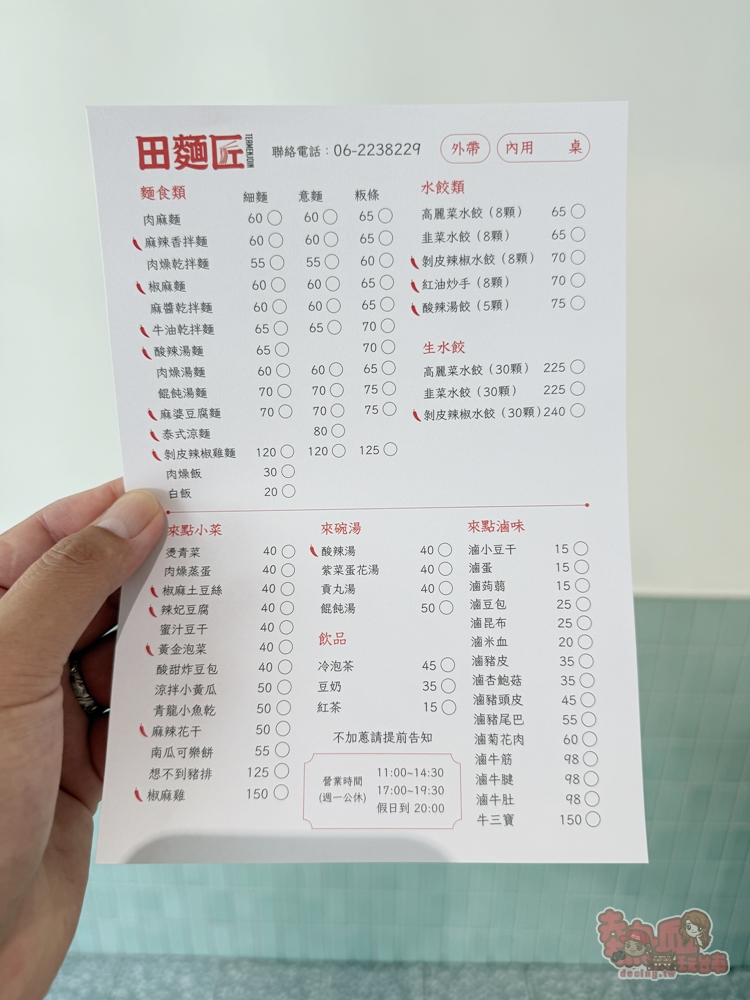 田麵匠 TERMENJOIN 聯絡電話：06-2238229 外帶 內用 桌
麵食類 細麵 意麵 粄條
肉麻麵 60 60 65
麻辣香拌麵 60 60 65
肉燥乾拌麵 55 55 60
椒麻麵 60 60 65
麻醬乾拌麵 60 60 65
牛油乾拌麵 65 65 70
酸辣湯麵 65 70
肉燥湯麵 60 60 65
餛飩湯麵 70 70 75
麻婆豆腐麵 70 70 75
泰式涼麵 80
剝皮辣椒雞麵 120 120 125
肉燥飯 30
白飯 20
水餃類
高麗菜水餃（8顆） 65
韭菜水餃（8顆） 65
剝皮辣椒水餃（8顆） 70
紅油炒手（8顆） 70
酸辣湯餃（5顆） 75
生水餃
高麗菜水餃（30顆） 225
韭菜水餃（30顆） 225
剝皮辣椒水餃（30顆）240
來點小菜
燙青菜 40
肉燥蒸蛋 40
椒麻土豆絲 40
辣妃豆腐 40
蜜汁豆干 40
黃金泡菜 40
酸甜炸豆包 40
涼拌小黃瓜 50
青龍小魚乾 50
麻辣花干 50
南瓜可樂餅 55
想不到豬排 125
椒麻雞 150
來碗湯
酸辣湯 40
紫菜蛋花湯 40
貢丸湯 40
餛飩湯 50
飲品
冷泡茶 45
豆奶 35
紅茶 15
不加蔥請提前告知
營業時間
(週一公休)
11:00~14:30
17:00~19:30
假日到 20:00
來點滷味
滷小豆干 15
滷蛋 15
滷蒟蒻 15
滷豆包 25
滷昆布 25
滷米血 20
滷豬皮 35
滷杏鮑菇 35
滷豬頭皮 45
滷豬尾巴 55
滷菊花肉 60
滷牛筋 98
滷牛腱 98
滷牛肚 98
牛三寶 150
熱血玩妹
decing.tw